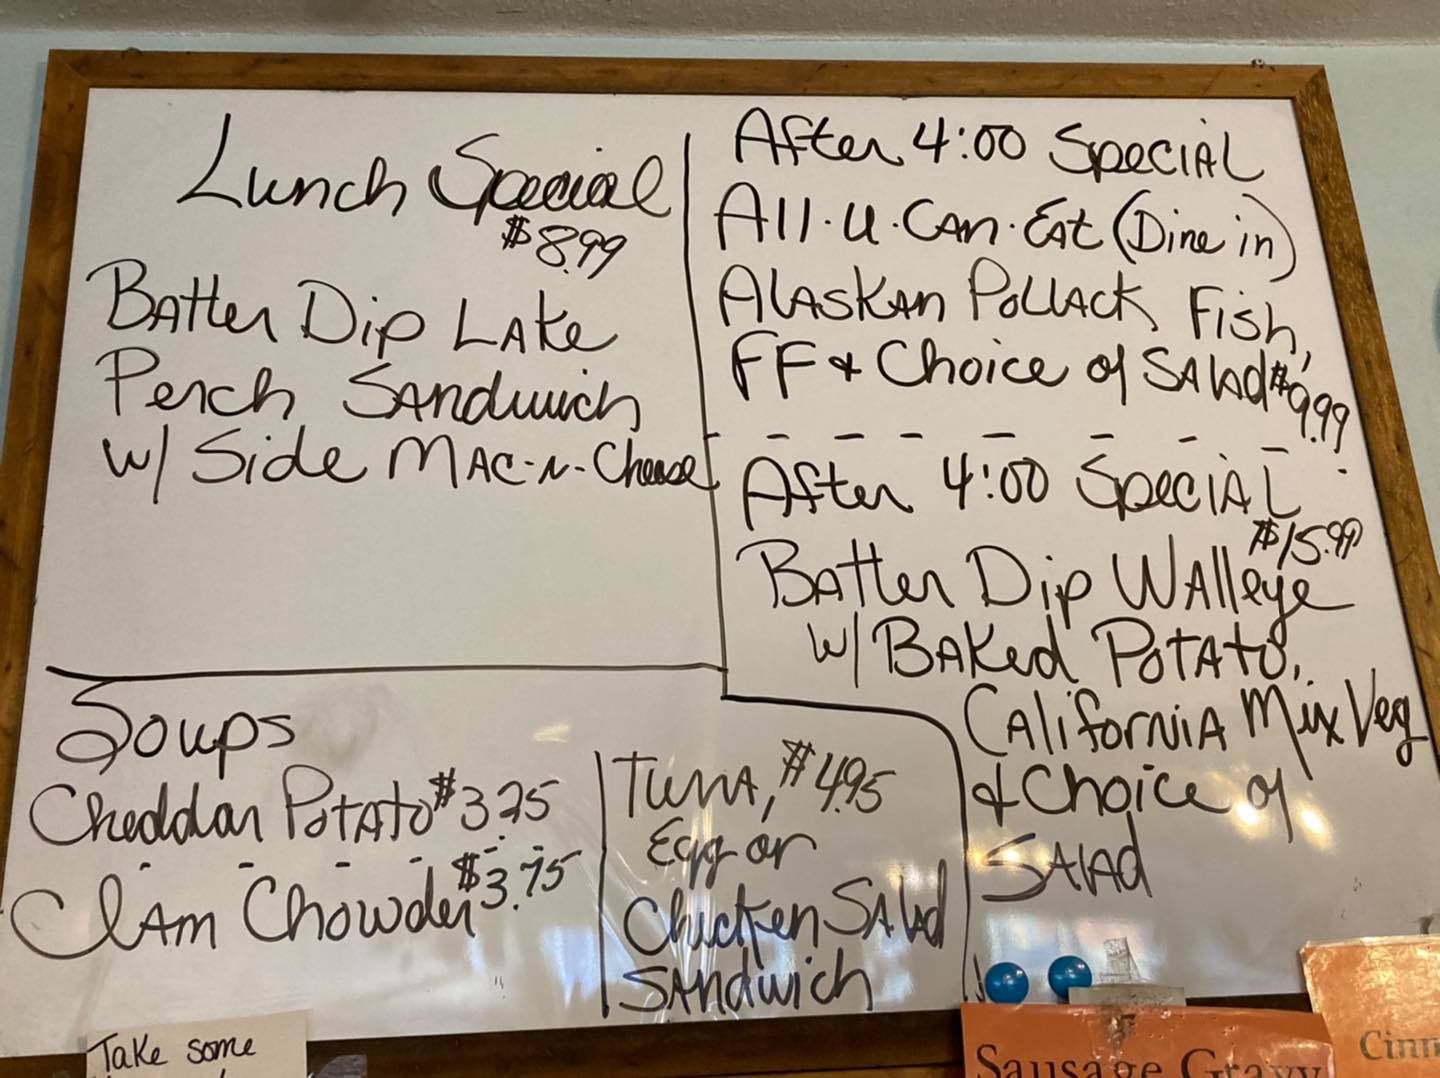 Lunch Special
$8.99
Batter Dip Lake
Perch Sandwich
w/ Side Mac-N-Cheese
After 4:00 Special
All-U-Can-Eat (Dine in)
Alaskan Pollack Fish,
FF & Choice of Salad $9.99
After 4:00 Special
$15.99
Batter Dip Walleye
w/ Baked Potato,
California Mix Veg
& Choice of
Salad
Soups
Cheddar Potato $3.75
Clam Chowder $3.75
Tuna, $4.95
Egg or
Chicken Salad
Sandwich
Take some
Sausage Gravy
Cinn